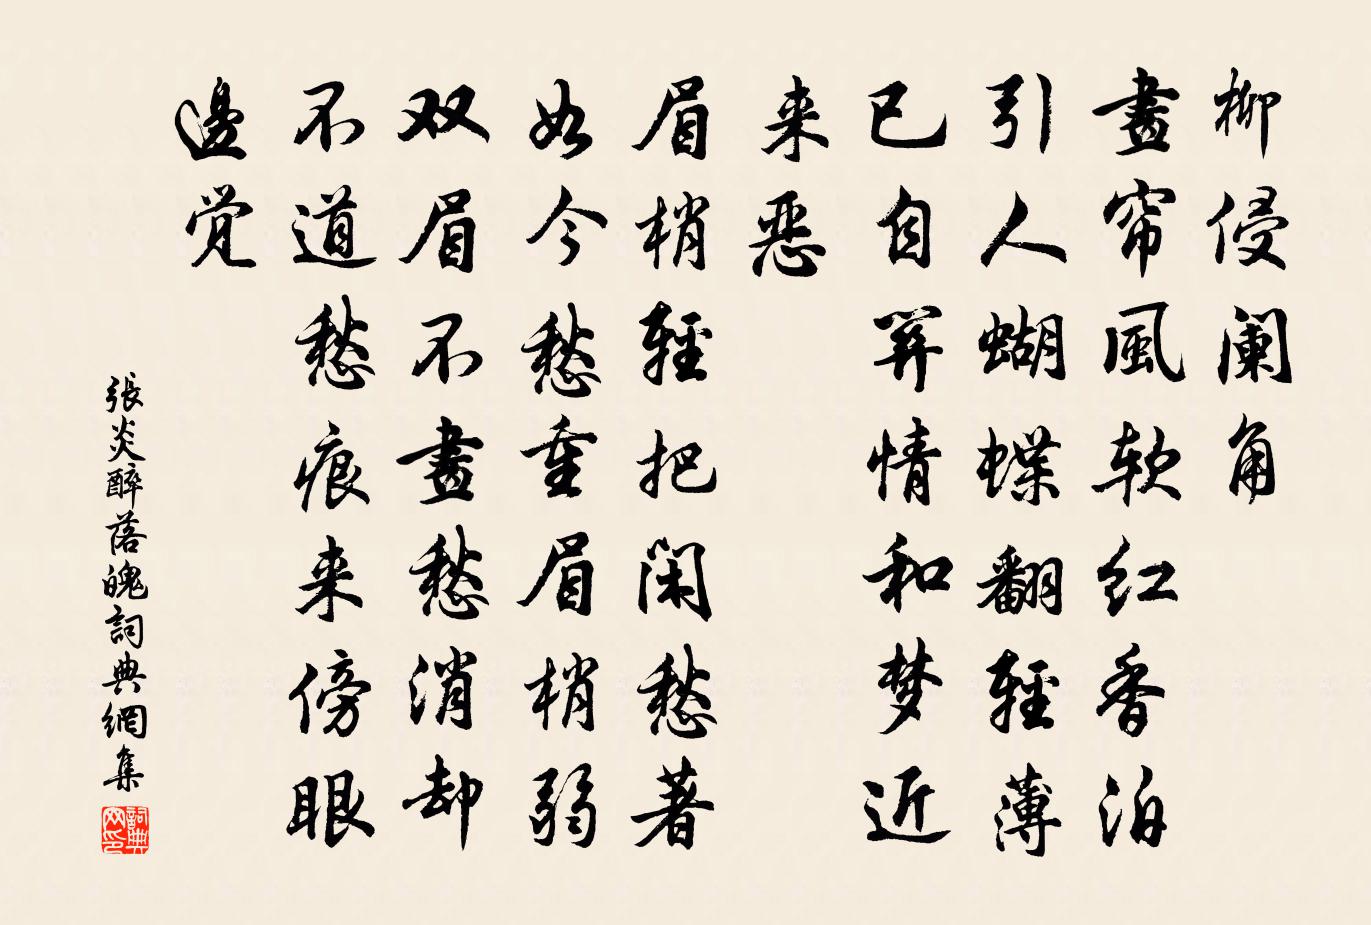 柳侵阑角
畫帘風软红香泊
引人蝴蝶翻輕薄
已自関情和梦近
来恶
眉梢輕把闲愁著
如今愁重眉梢弱
双眉不畫愁消却
不道愁痕来傍眼
邊觉
張炎醉落魄詞典網集
詞典网印